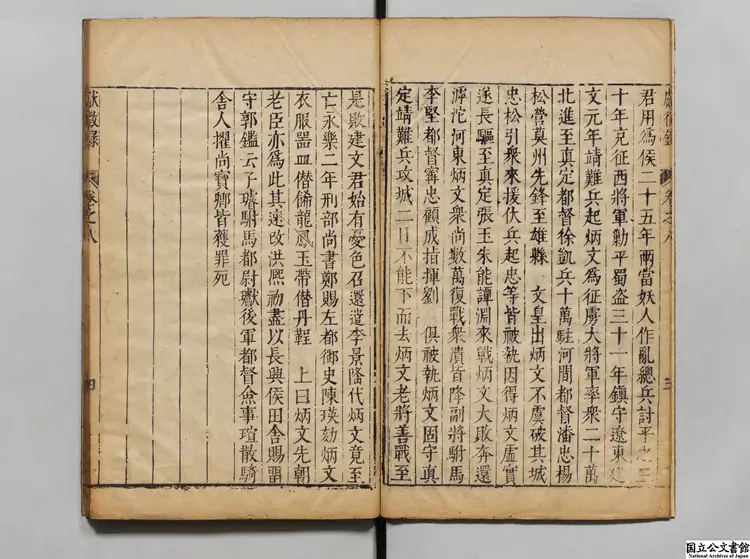 獻徵錄
卷之八
三
君用爲侯二十五年兩當妖人作亂總兵討平之三
十年克征西將軍勦平蜀盜三十一年鎮守遼東建
文元年靖難兵起炳文爲征虜大將軍率衆二十萬
北進至真定都督徐凱兵十萬駐河間都督潘忠楊
松營莫州先鋒至雄縣 文皇出炳文不虞破其城
忠松引衆來援伏兵起忠等皆被執因得炳文虛實
遂長驅至真定張玉朱能譚淵來戰炳文大敗奔還
滹沱河東炳文衆尚數萬復戰衆潰皆降副將駙馬
李堅都督甯忠顧成指揮劉 俱被執炳文固守真
定靖難兵攻城二日不能下而去炳文老將善戰至
是敗建文君始有憂色召還遣李景隆代炳文竟至
亡永樂二年刑部尚書鄭賜左都御史陳瑛劾炳文
衣服器皿僭飾龍鳳玉帶僭丹鞓 上曰炳文先朝
老臣亦爲此其速改洪熙初盡以長興侯田舍賜畱
守郭鑑云子璿駙馬都尉瓛後軍都督僉事瑄散騎
舍人擢尚寶卿皆獲罪死
獻徵錄
卷之八
四
国立公文書館
National Archives of Japan